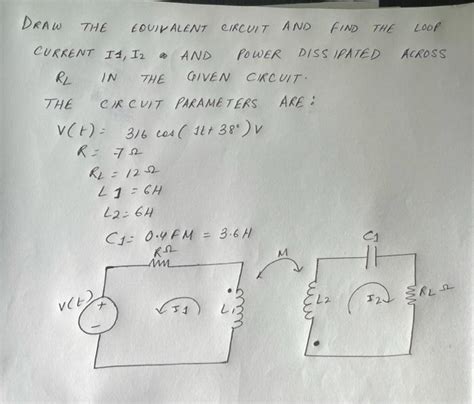 DRAW THE EQUIVALENT CIRCUIT AND FIND THE LOOP
CURRENT I1, I2 AND POWER DISSIPATED ACROSS
RL IN THE GIVEN CIRCUIT.
THE CIRCUIT PARAMETERS ARE:
V(t) = 316 cos( 1t + 38°) V
R = 7 Ω
RL = 12 Ω
L1 = 6H
L2 = 6H
C1 = 0.4F M = 3.6H
RΩ
M
C1
V(t)
+
−
I1
L1
L2
I2
RL Ω